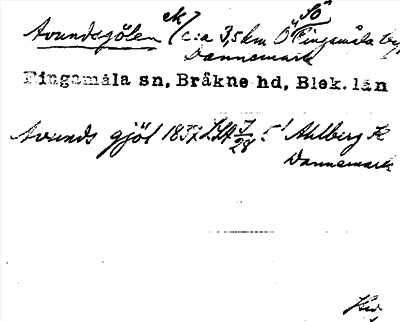 Avundsgölen ca 3,5 km Ö Fingamåla
Dannemark
Fingamåla sn, Bråkne hd, Blek. län
Avunds gjöl 1837 Ahlberg K
Dannemark